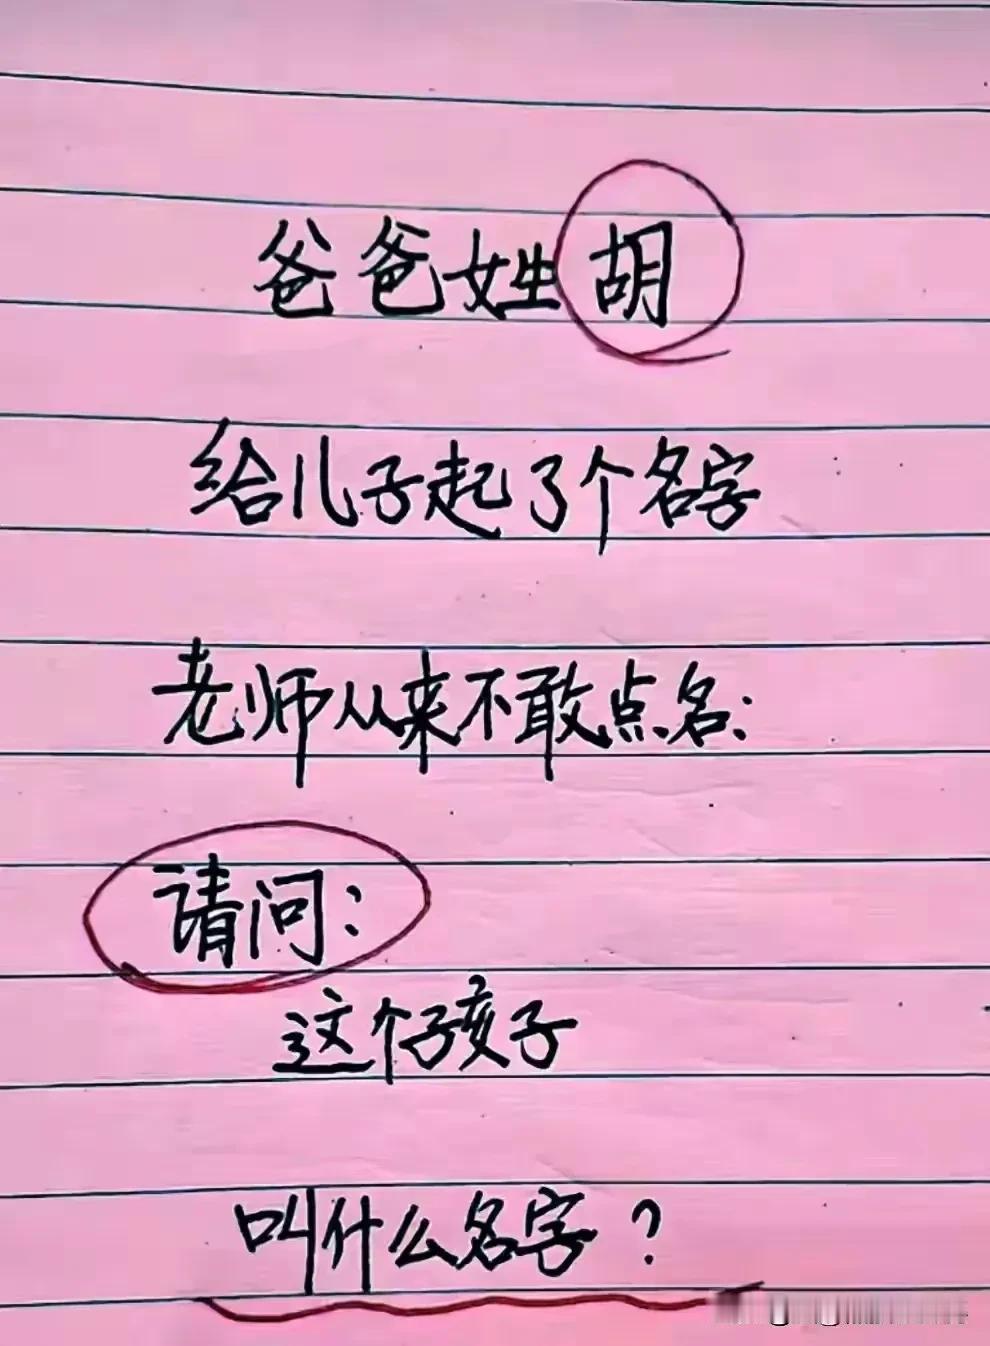 爸爸姓胡
给儿子起了个名字
老师从来不敢点名:
请问:
这个孩子
叫什么名字?